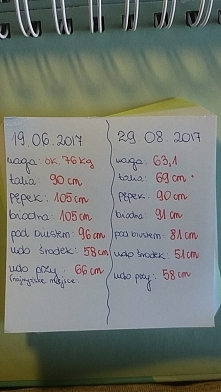 19 06.2017
waga: ok. 76 kg
talia: 90 cm
pępek: 105 cm
biodra: 105 cm
pod biustem: 96 cm
udo środek: 58 cm
udo przy: 66 cm
(najwyższe miejsce
29 08. 2017
waga: 63,1
talia: 69 cm
pępek: 90 cm
biodra: 91 cm
pod biustem: 81 cm
udo środek: 51 cm
udo przy: 58 cm